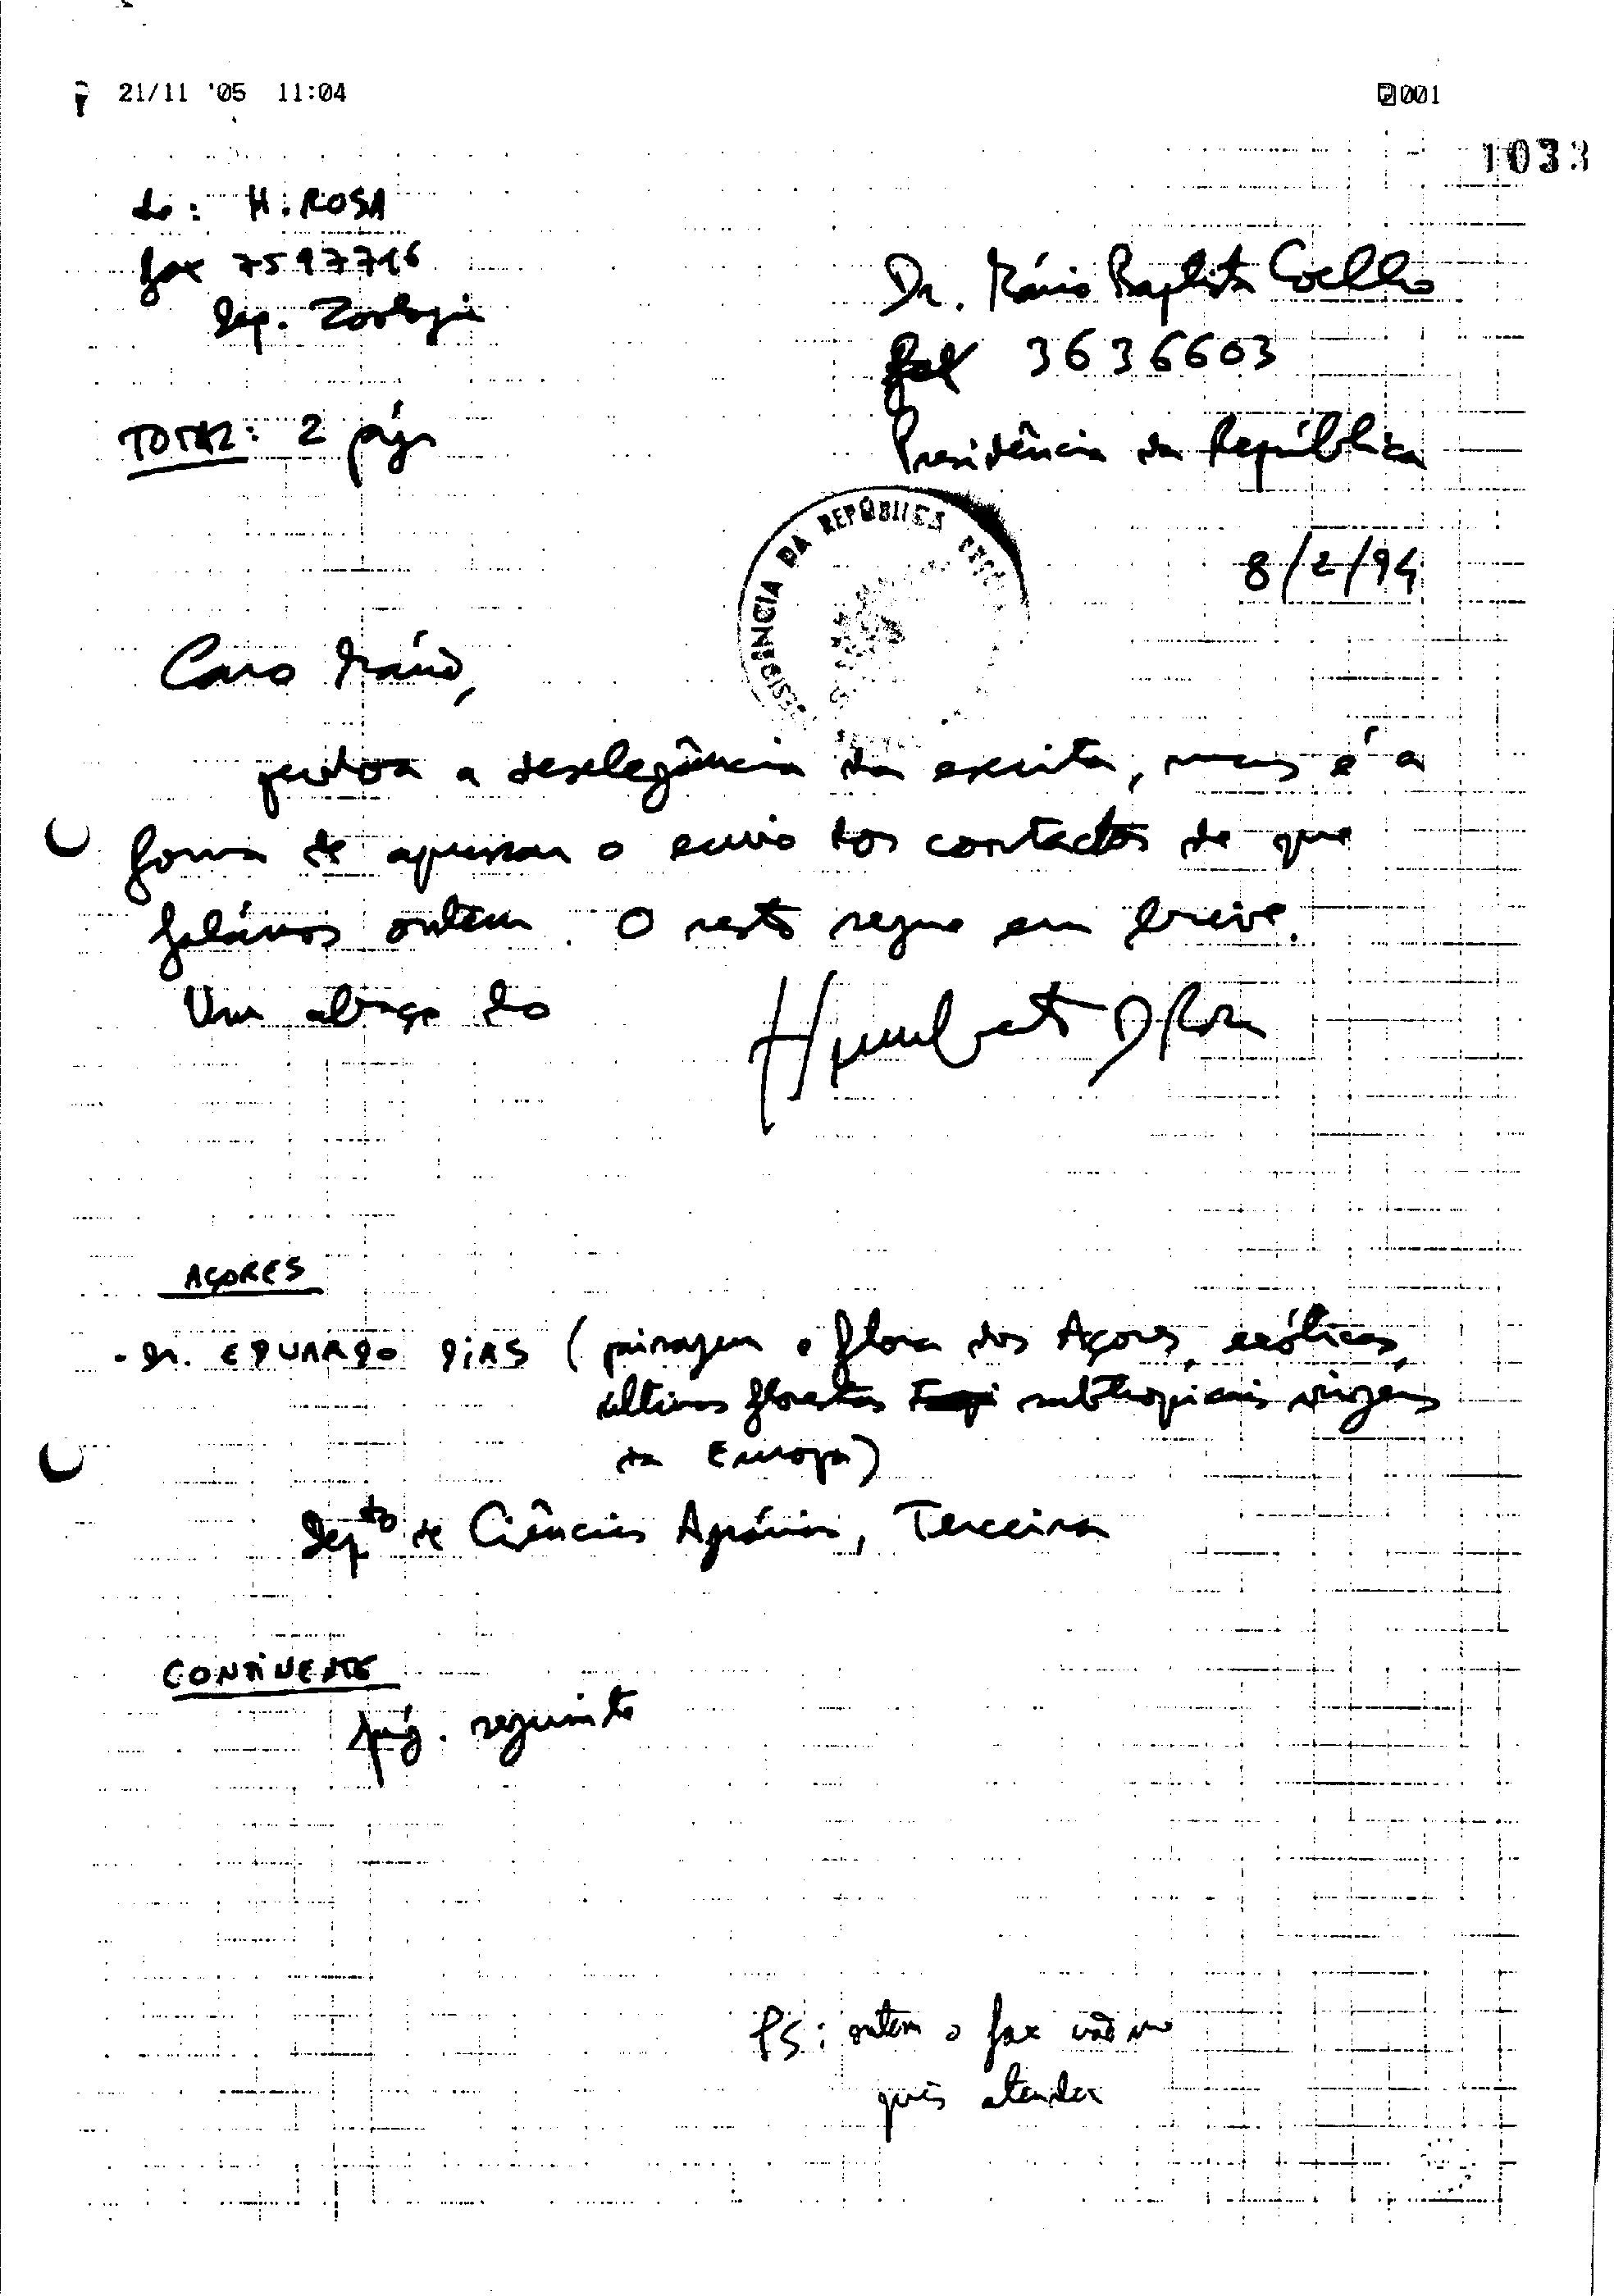 21/11 '05 11:04
001
1033
de: H. ROSA
fax 7597716
Dep. Zoologia
Dr. Mário Baptista Coelho
fax 3636603
TOTAL: 2 págs
Presidência da República
PRESIDÊNCIA DA REPÚBLICA
8/2/94
Caro Mário,
perdoa a deselegância da escrita, mas é a
forma de apressar o envio dos contactos de que
falámos ontem. O resto segue em breve.
Um abraço do
Humberto D Rosa
AÇORES
- Dr. EDUARDO DIAS (paisagem e flora dos Açores, exóticas,
últimas florestas subtropicais virgens
da Europa)
Depto de Ciências Agrárias, Terceira
CONTINENTE
pág. seguinte
PS: ontem o fax não me
quis atender